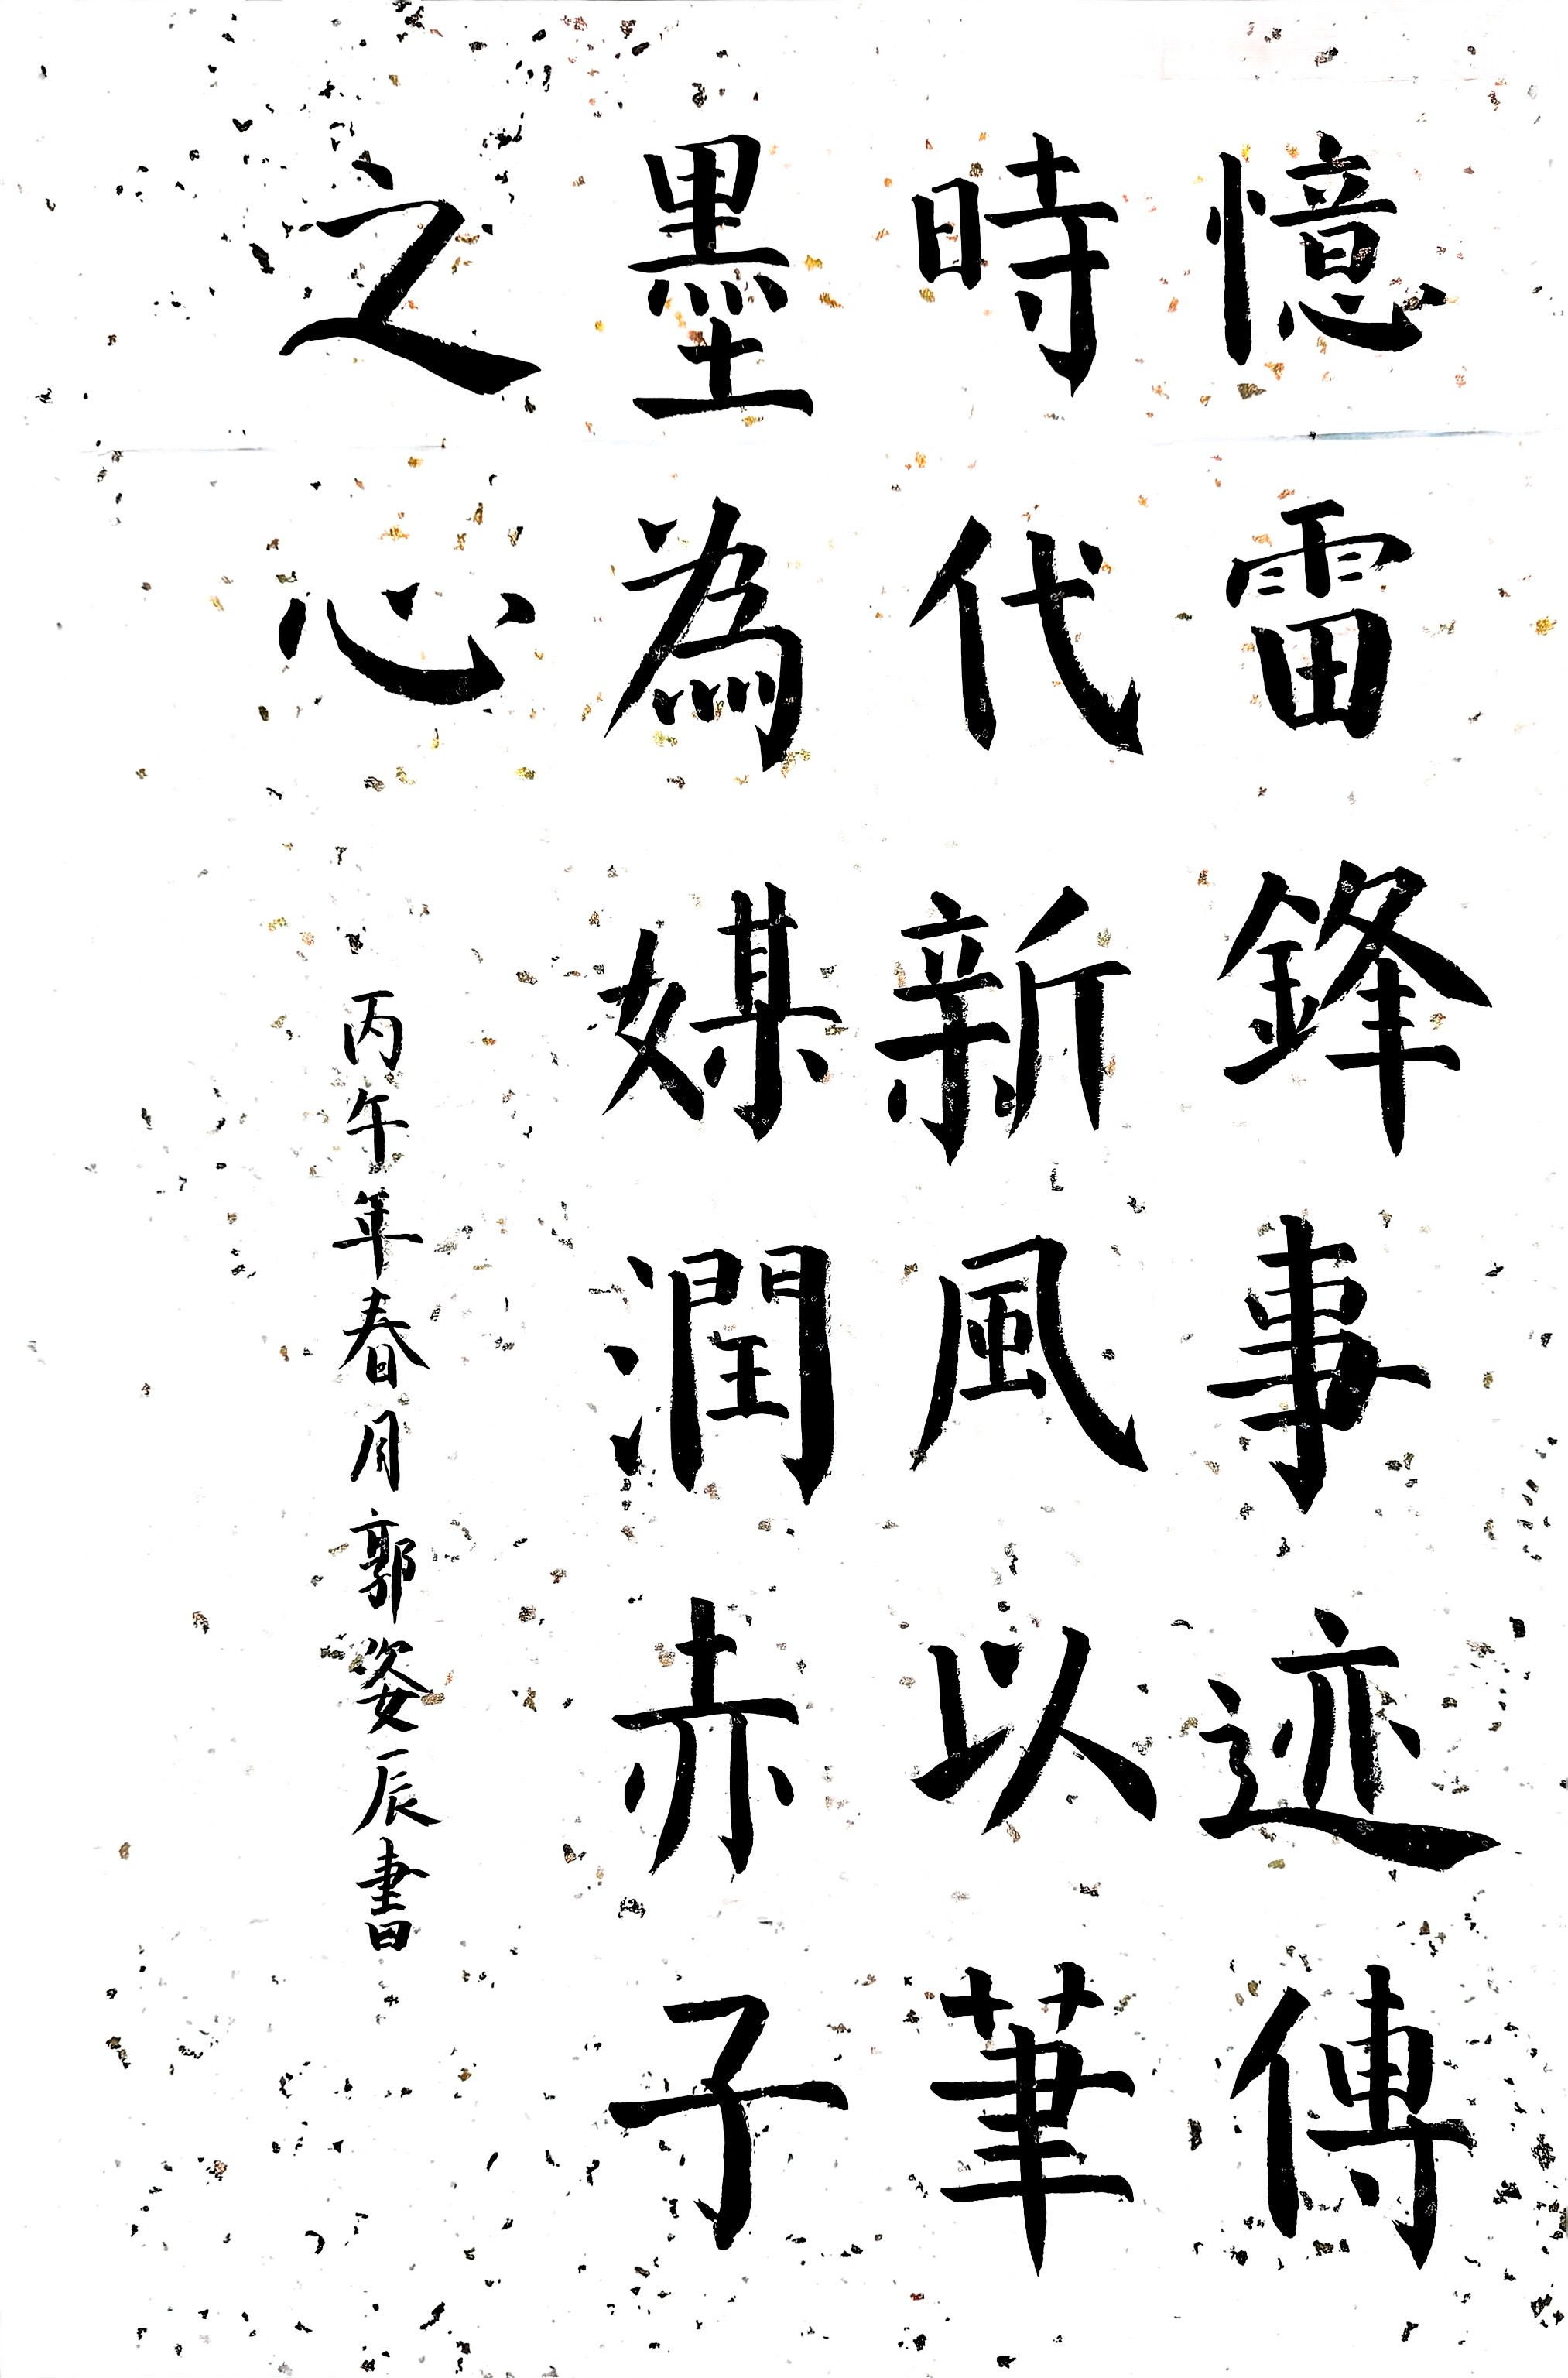 憶雷鋒事迹傳
時代新風以筆
墨為媒潤赤子
之心
丙午年春月郭姿辰書